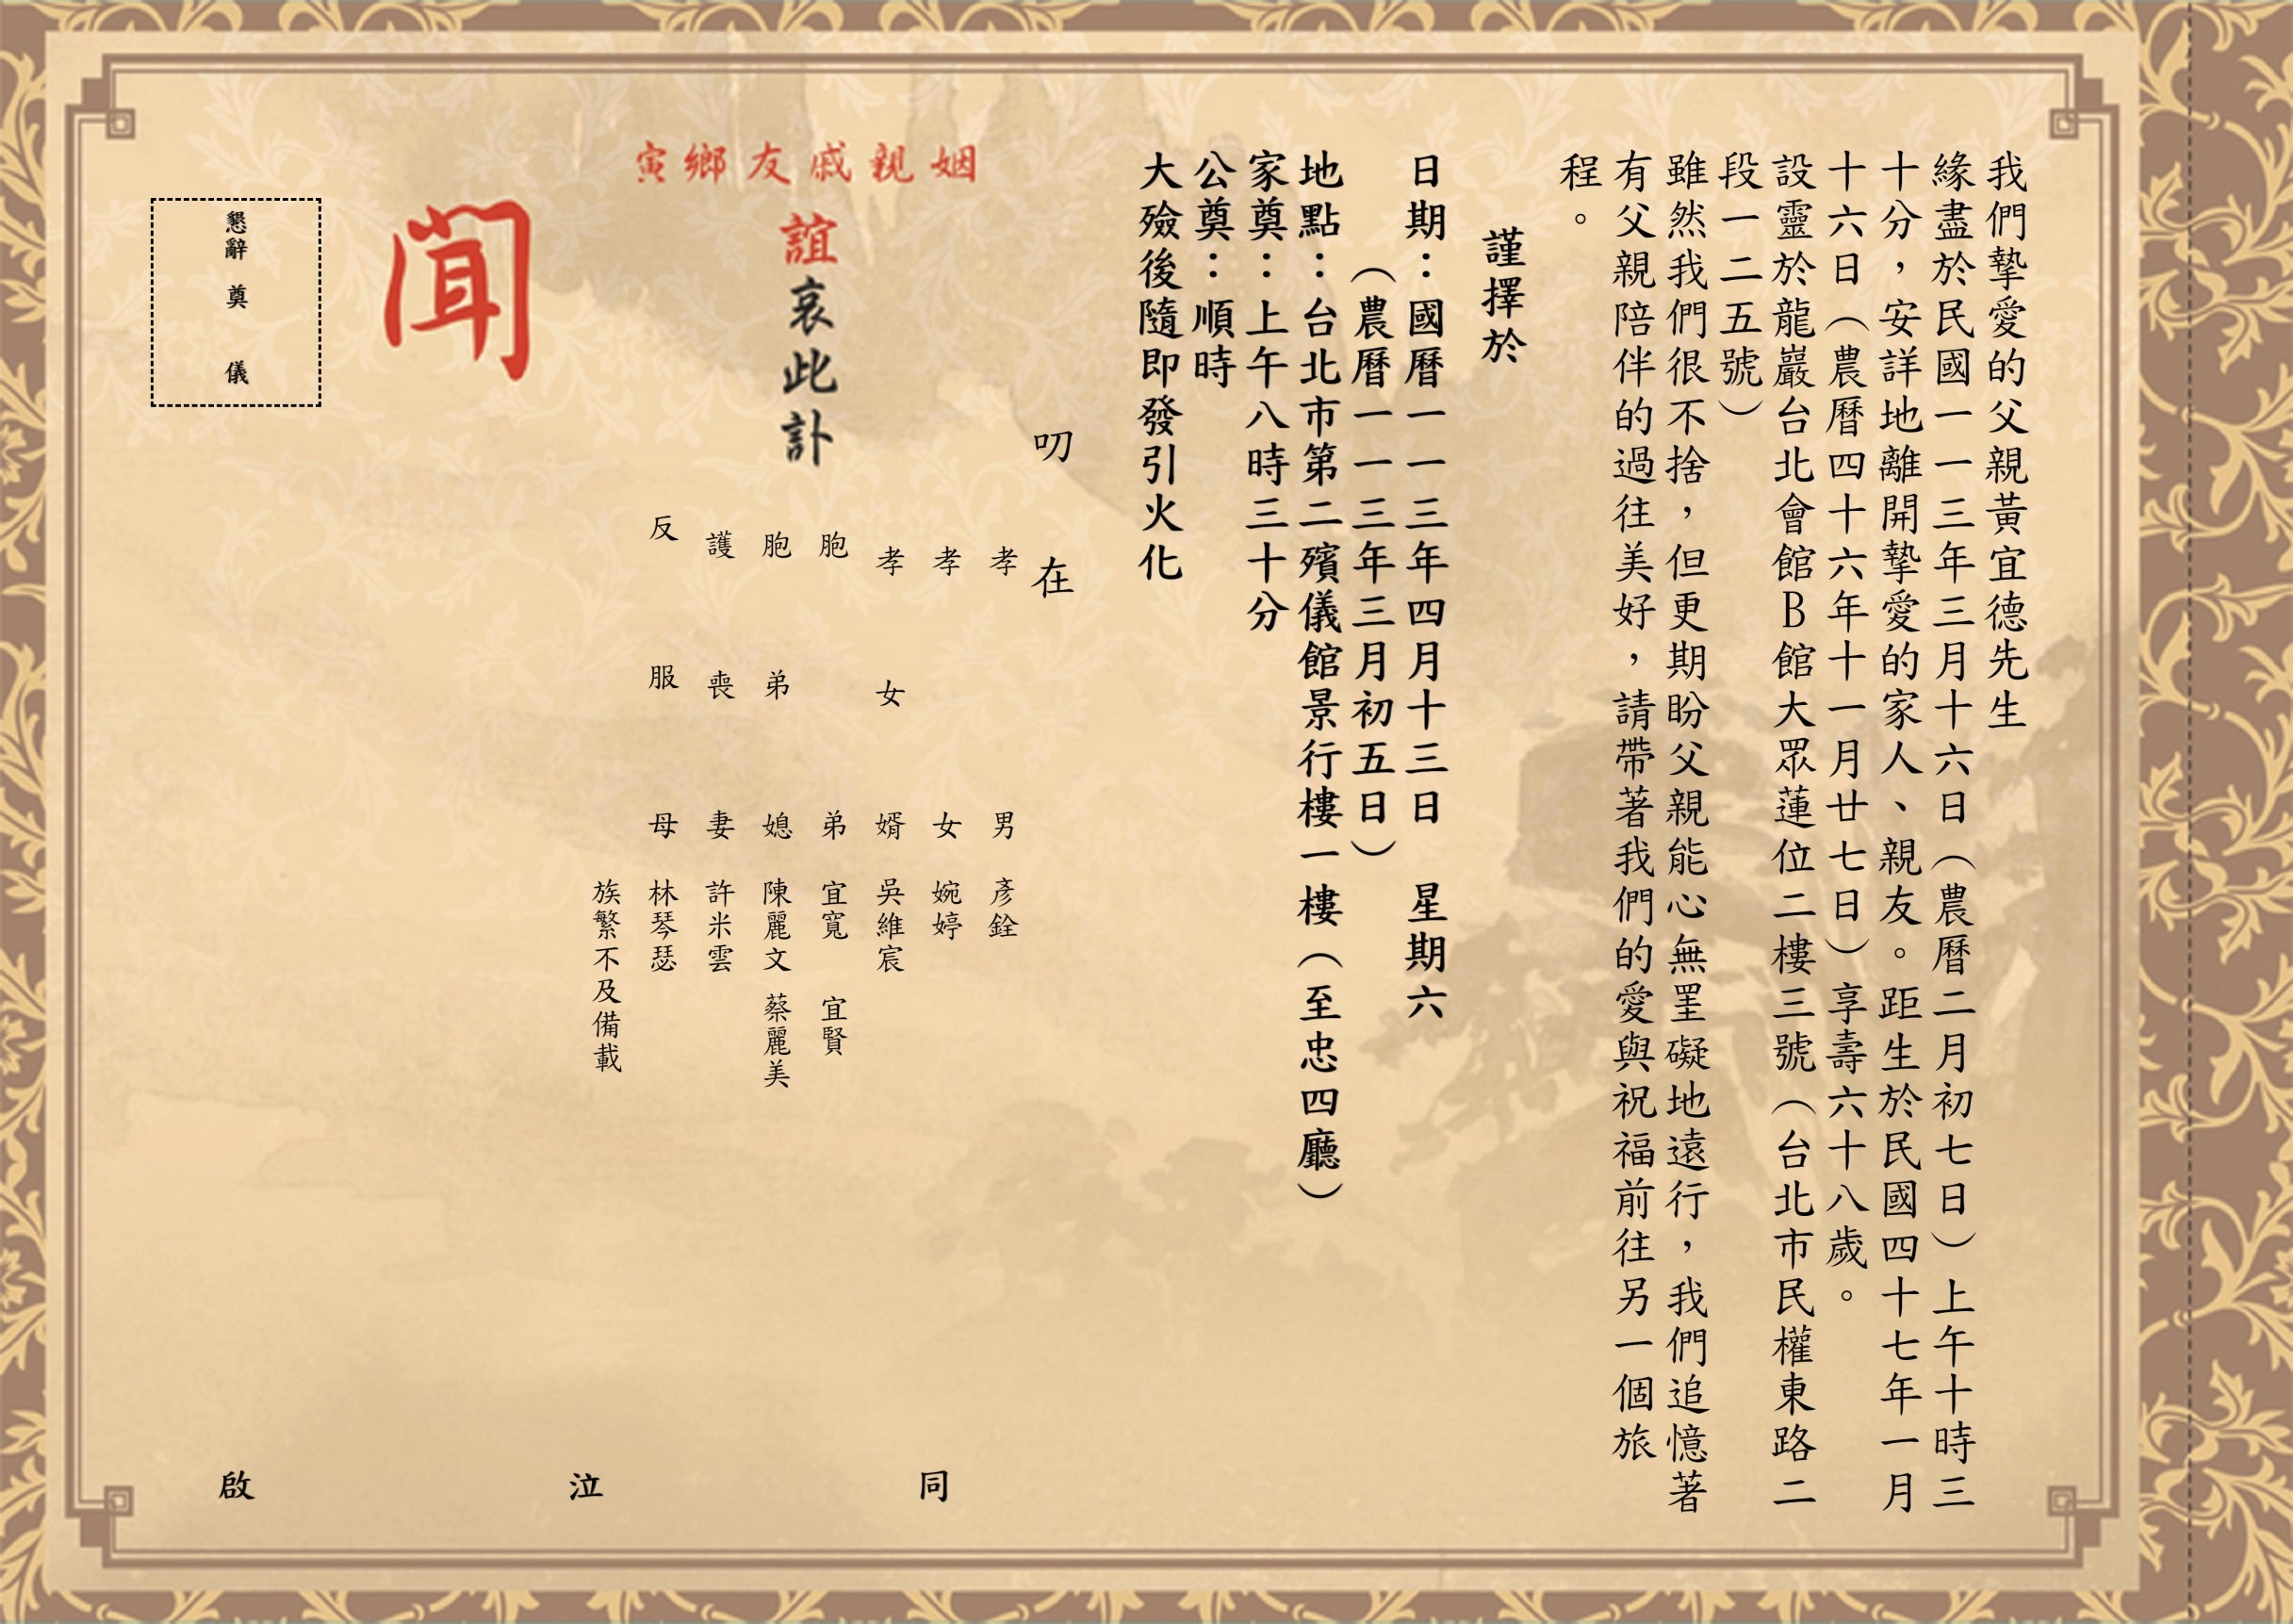 我們摯愛的父親黃宜德先生
緣盡於民國一一三年三月十六日（農曆二月初七日）上午十時三
十分，安詳地離開摯愛的家人、親友。距生於民國四十七年一月
十六日（農曆四十六年十一月廿七日）享壽六十八歲。
設靈於龍巖台北會館B館大眾蓮位二樓三號（台北市民權東路二
段一二五號）
雖然我們很不捨，但更期盼父親能心無罣礙地遠行，我們追憶著
有父親陪伴的過往美好，請帶著我們的愛與祝福前往另一個旅
程。
謹擇於
日期：國曆一一三年四月十三日 星期六
（農曆一一三年三月初五日）
地點：台北市第二殯儀館景行樓一樓（至忠四廳）
家奠：上午八時三十分
公奠：順時
大殮後隨即發引火化
叨在
姻親戚友鄉寅
誼哀此訃
聞
孝男 彥銓
孝女 婉婷
孝女婿 吳維宸
胞弟 宜寬 宜賢
胞弟媳 陳麗文 蔡麗美
護喪妻 許米雲
反服母 林琴瑟
族繁不及備載
同泣啟
懇辭 奠儀